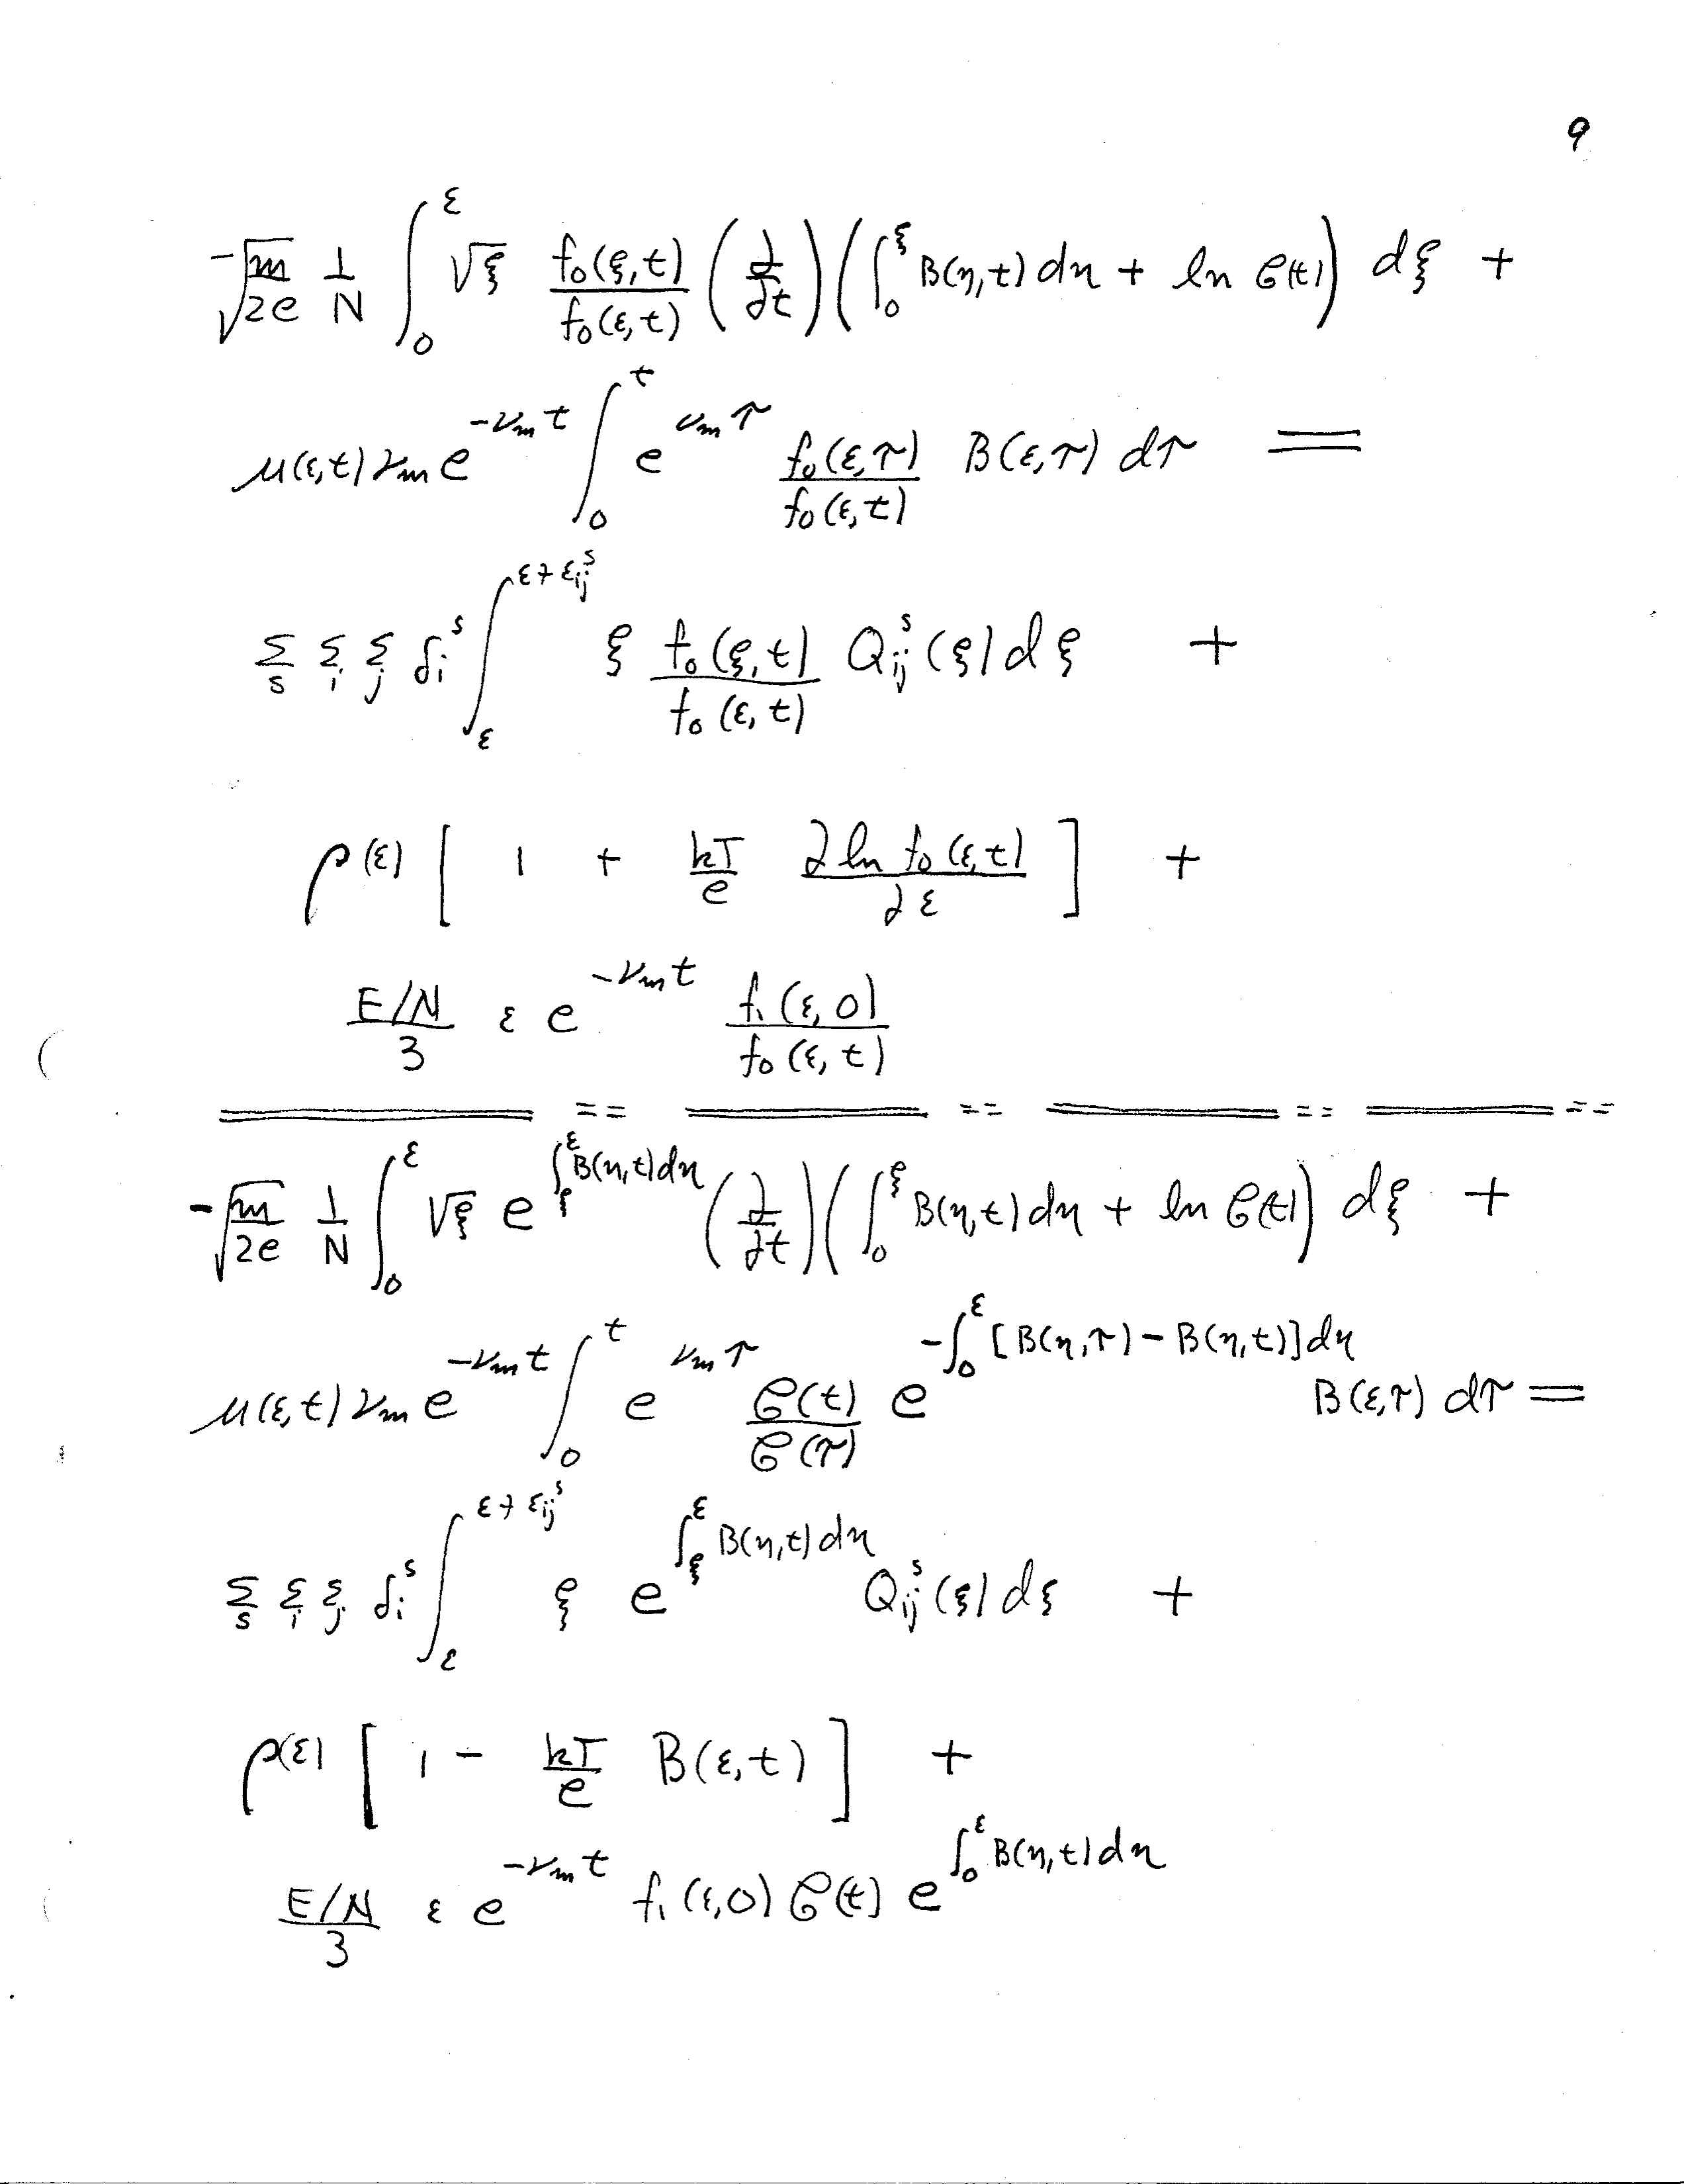 9
-√(m/2e) 1/N ∫₀^ε √ξ f₀(ξ,t)/f₀(ε,t) (∂/∂t)(∫₀^ξ B(η,t)dη + ln 𝒞(t)) dξ +
μ(ε,t) ν_m e^(-ν_m t) ∫₀^t e^(ν_m τ) f₀(ε,τ)/f₀(ε,t) B(ε,τ) dτ =
Σ_s Σ_i Σ_j δ_i^s ∫_ε^(ε+ε_ij^s) ξ f₀(ξ,t)/f₀(ε,t) Q_ij^s(ξ) dξ +
ρ(ε) [ 1 + kT/e ∂ ln f₀(ε,t)/∂ε ] +
E/N/3 ε e^(-ν_m t) f₁(ε,0)/f₀(ε,t)
-√(m/2e) 1/N ∫₀^ε √ξ e^(∫_ξ^ε B(η,t)dη) (∂/∂t)(∫₀^ξ B(η,t)dη + ln 𝒞(t)) dξ +
μ(ε,t) ν_m e^(-ν_m t) ∫₀^t e^(ν_m τ) 𝒞(t)/𝒞(τ) e^(-∫₀^ε [B(η,τ) - B(η,t)]dη) B(ε,τ) dτ =
Σ_s Σ_i Σ_j δ_i^s ∫_ε^(ε+ε_ij^s) ξ e^(∫_ξ^ε B(η,t)dη) Q_ij^s(ξ) dξ +
ρ(ε) [ 1 - kT/e B(ε,t) ] +
E/N/3 ε e^(-ν_m t) f₁(ε,0) 𝒞(t) e^(∫₀^ε B(η,t)dη)